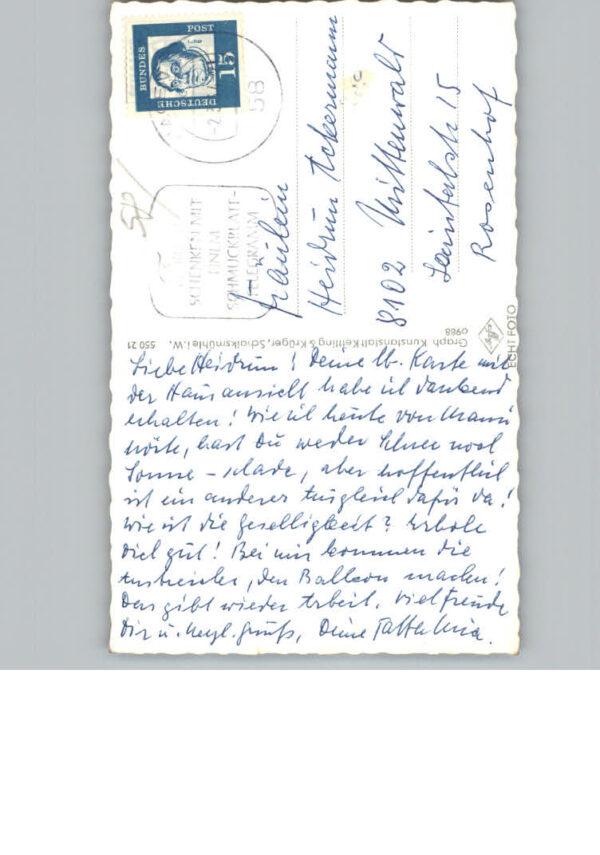 DEUTSCHE
BUNDES
POST
15
58
SCHENKEN MIT
EINEM
SCHMUCKBLATT-
TELEGRAMM
Fräulein
Heidrun Ackermann
8102 Mittenwald
Laintalstr. 15
Rosenhof
Graph. Kunstanstalt Kettling & Krüger, Schalksmühle i. W.
550 21
o988
Agfa
ECHT FOTO
Liebe Heidrun! Deine lb. Karte mit
der Hausansicht habe ich dankend
erhalten! Wie ich heute von Mami
hörte, hast Du weder Schnee noch
Sonne – schade, aber hoffentlich
ist ein anderer Ausgleich dafür da!
Wie ist die Geselligkeit? Erhole
Dich gut! Bei mir kommen die
Anstreicher, den Balkon machen!
Das gibt wieder Arbeit. Viel Freude
Dir u. herzl. Gruß, Deine Tante